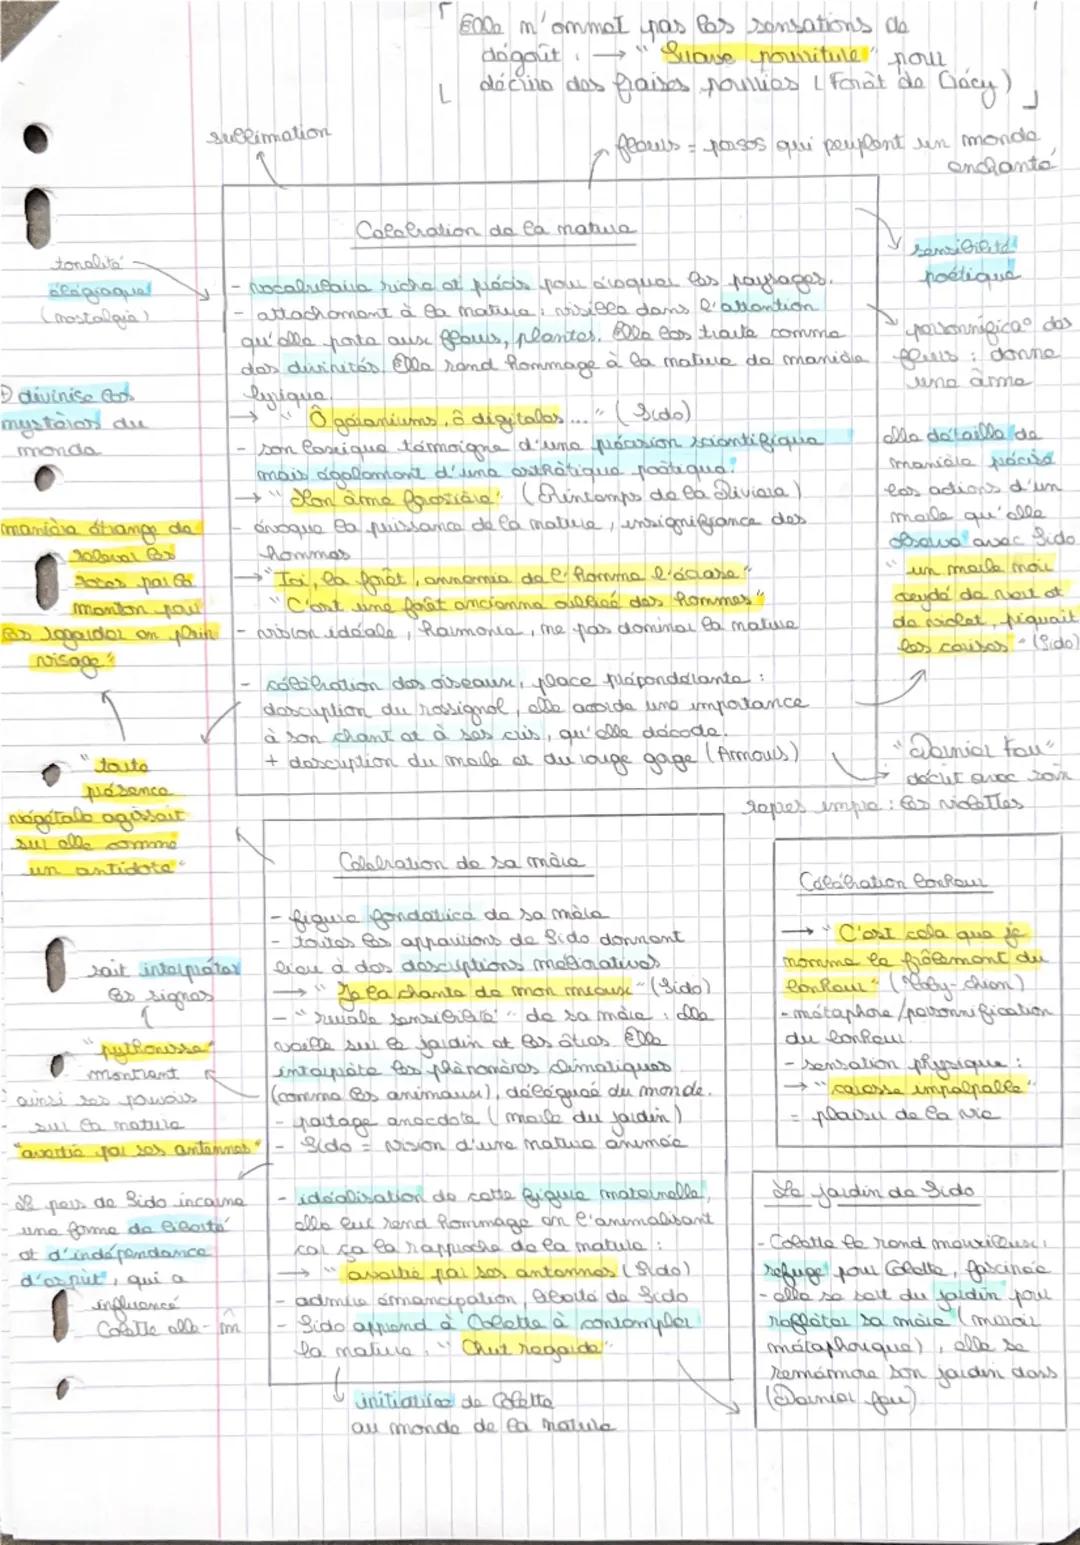 Elle n'ommet pas les sensations de
dégoût. → "Suave pourriture" pour
décrire des fraises pourries (Forêt de Crécy)
sublimation
fleurs = poses qui peuplent un monde
enchanté
Célébration de la nature
- vocabulaire riche et précis pour évoquer les paysages.
- attachement à la nature : visible dans l'attention
qu'elle porte aux fleurs, plantes. Elle les traite comme
des divinités. Elle rend hommage à la nature de manière
lyrique.
→ "Ô géraniums, ô digitales..." (Sido)
- son lexique témoigne d'une précision scientifique
mais également d'une esthétique poétique :
→ "Mon âme forestière" (Printemps de la Riviera)
- évoque la puissance de la nature, insignifiance des
hommes
→ "Ici, la forêt, ennemie de l'homme l'écrase"
"C'est une forêt ancienne oubliée des hommes"
- vision idéale, harmonie, ne pas dominer la nature
- célébration des oiseaux, place prépondérante :
description du rossignol, elle accorde une importance
à son chant et à ses cris, qu'elle décode.
+ description du merle et du rouge gorge (Amours)
tonalité
élégiaque
(nostalgie)
divinise les
mystères du
monde
manière étrange de
relever les
roses par le
menton pour
les regarder en plein
visage"
"toute
présence
végétale agissait
sur elle comme
un antidote"
sensibilité
poétique
personnificaº des
fleurs : donne
une âme
elle détaille de
manière précise
les actions d'un
merle qu'elle
observe avec Sido
"un merle noir
oxydé de vert et
de violet, piquait
les cerises" (Sido)
"Dernier Feu"
décrit avec soin
repres impre : les violettes
Célébration de sa mère
- figure fondatrice de sa mère
- toutes les apparitions de Sido donnent
lieu à des descriptions mélioratives
→ "Je la chante de mon mieux" (Sido)
- "rurale sensibilité" de sa mère : elle
veille sur le jardin et les êtres. Elle
interprète les phénomènes climatiques
(comme les animaux), déléguée du monde.
- partage anecdote (merle du jardin)
- Sido = vision d'une nature animée
- idéalisation de cette figure maternelle,
elle lui rend hommage en l'animalisant
car ça la rapproche de la nature :
→ "avertie par ses antennes (Sido)
- admire émancipation, liberté de Sido
- Sido apprend à Colette à contempler
la nature. "Chut regarde".
initiatrice de Colette
au monde de la nature
sait interpréter
les signes
"pythonisse"
montrant
ainsi ses pouvoirs
sur la nature
"avertie par ses antennes"
Le père de Sido incarne
une forme de liberté
et d'indépendance
d'esprit, qui a
influencé
Colette elle-m̂
Célébration bonheur
→ "C'est cela que je
nomme le frôlement du
bonheur" (Toby-chien)
- métaphore/personnification
du bonheur.
- sensation physique :
→ "caresse impalpable"
= plaisir de la vie
Le jardin de Sido
- Colette le rend merveilleux,
refuge pour Colette, fascinée
- elle se sert du jardin pour
refléter sa mère (miroir
métaphorique), elle se
remémore son jardin dans
(Dernier feu)